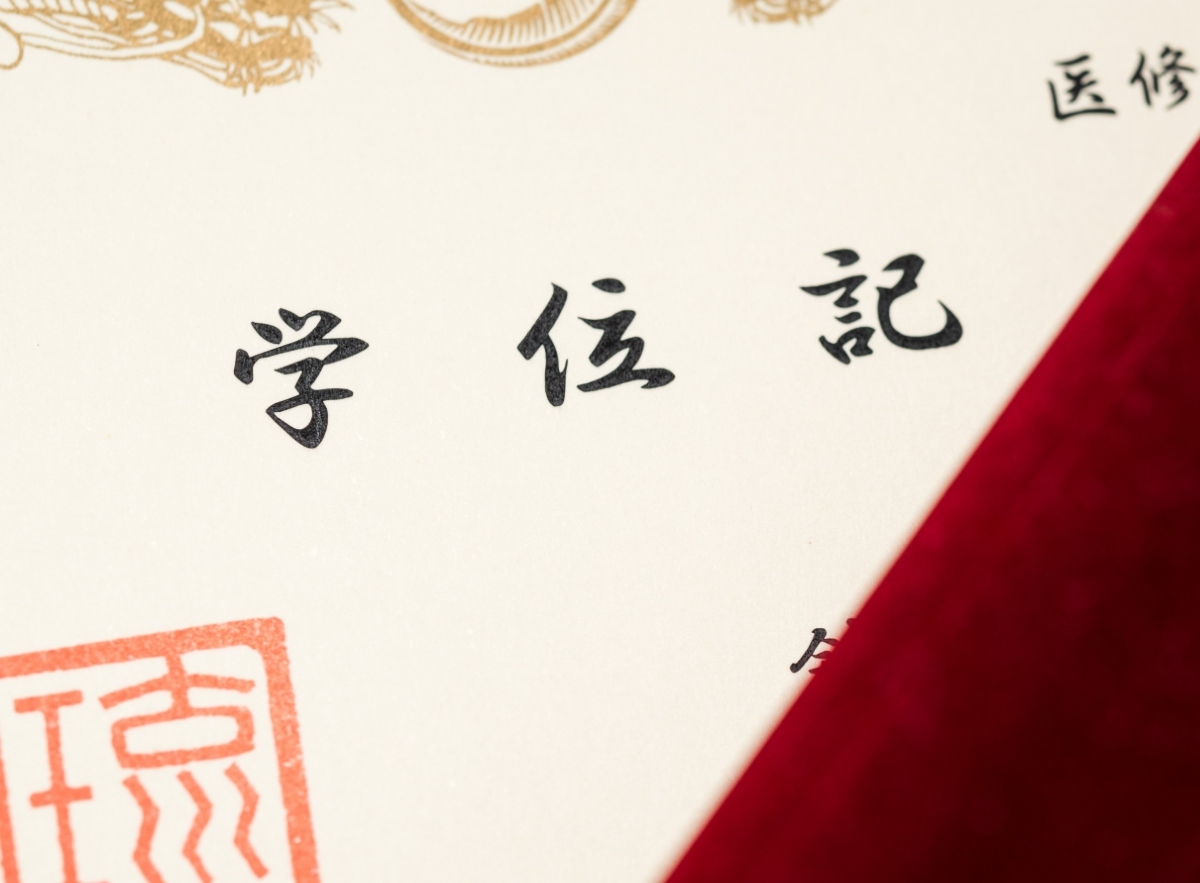 医修
学位記
琉